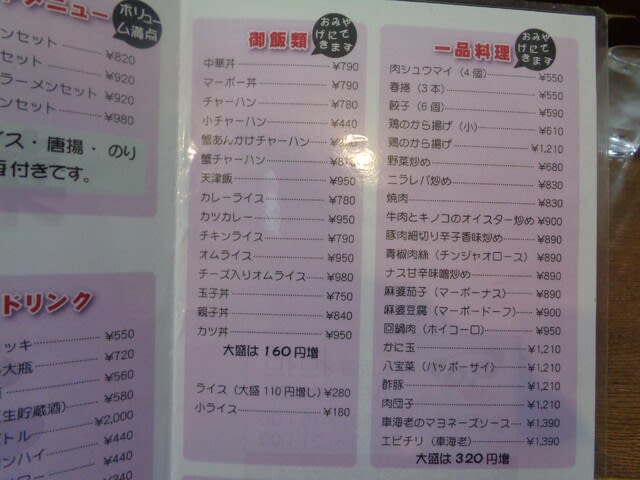 メニュー
ボリューム満点
ンセット ¥820
セット ¥920
ラーメンセット ¥920
ンセット ¥980
イス・唐揚・のり
付きです。
ドリンク
¥550
大瓶 ¥720
¥560
¥580
生貯蔵酒)
トル ¥2,000
ンハイ ¥440
¥440
御飯類
おみや
げにで
きます
中華丼 ¥790
マーボー丼 ¥790
チャーハン ¥780
小チャーハン ¥440
蟹あんかけチャーハン
蟹チャーハン
天津飯 ¥950
カレーライス ¥780
カツカレー ¥950
チキンライス ¥790
オムライス ¥950
チーズ入りオムライス ¥980
玉子丼 ¥750
親子丼 ¥840
カツ丼 ¥950
大盛は160円増
ライス(大盛110円増し) ¥280
小ライス ¥180
一品料理
おみや
げにで
きます
肉シュウマイ(4個) ¥550
春捲(3本) ¥550
餃子(6個) ¥590
鶏のから揚げ(小) ¥610
鶏のから揚げ ¥1,210
野菜炒め ¥680
ニラレバ炒め ¥830
焼肉 ¥830
牛肉とキノコのオイスター炒め ¥900
豚肉細切り辛子香味炒め ¥890
青椒肉絲(チンジャオロース) ¥890
ナス甘辛味噌炒め ¥890
麻婆茄子(マーボーナス) ¥890
麻婆豆腐(マーボードーフ) ¥900
回鍋肉(ホイコーロ) ¥950
かに玉 ¥1,210
八宝菜(ハッポーサイ) ¥1,210
酢豚 ¥1,210
肉団子 ¥1,210
車海老のマヨネーズソース ¥1,390
エビチリ(車海老) ¥1,390
大盛は320円増